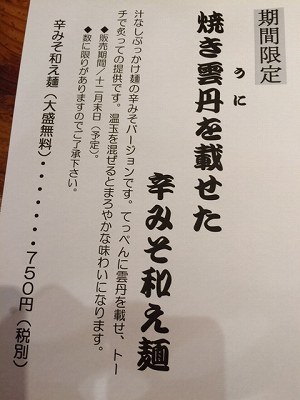 期間限定
焼き雲丹を載せた
うに
辛みそ和え麺
汁なしぶっかけ麺の辛みそバージョンです。てっぺんに雲丹を載せ、トー
チで炙っての提供です。温玉を混ぜるとまろやかな味わいになります。
●販売期間/十二月末日(予定)。
●数に限りがありますのでご了承下さい。
辛みそ和え麺(大盛無料)・・・・・・・750円(税別)